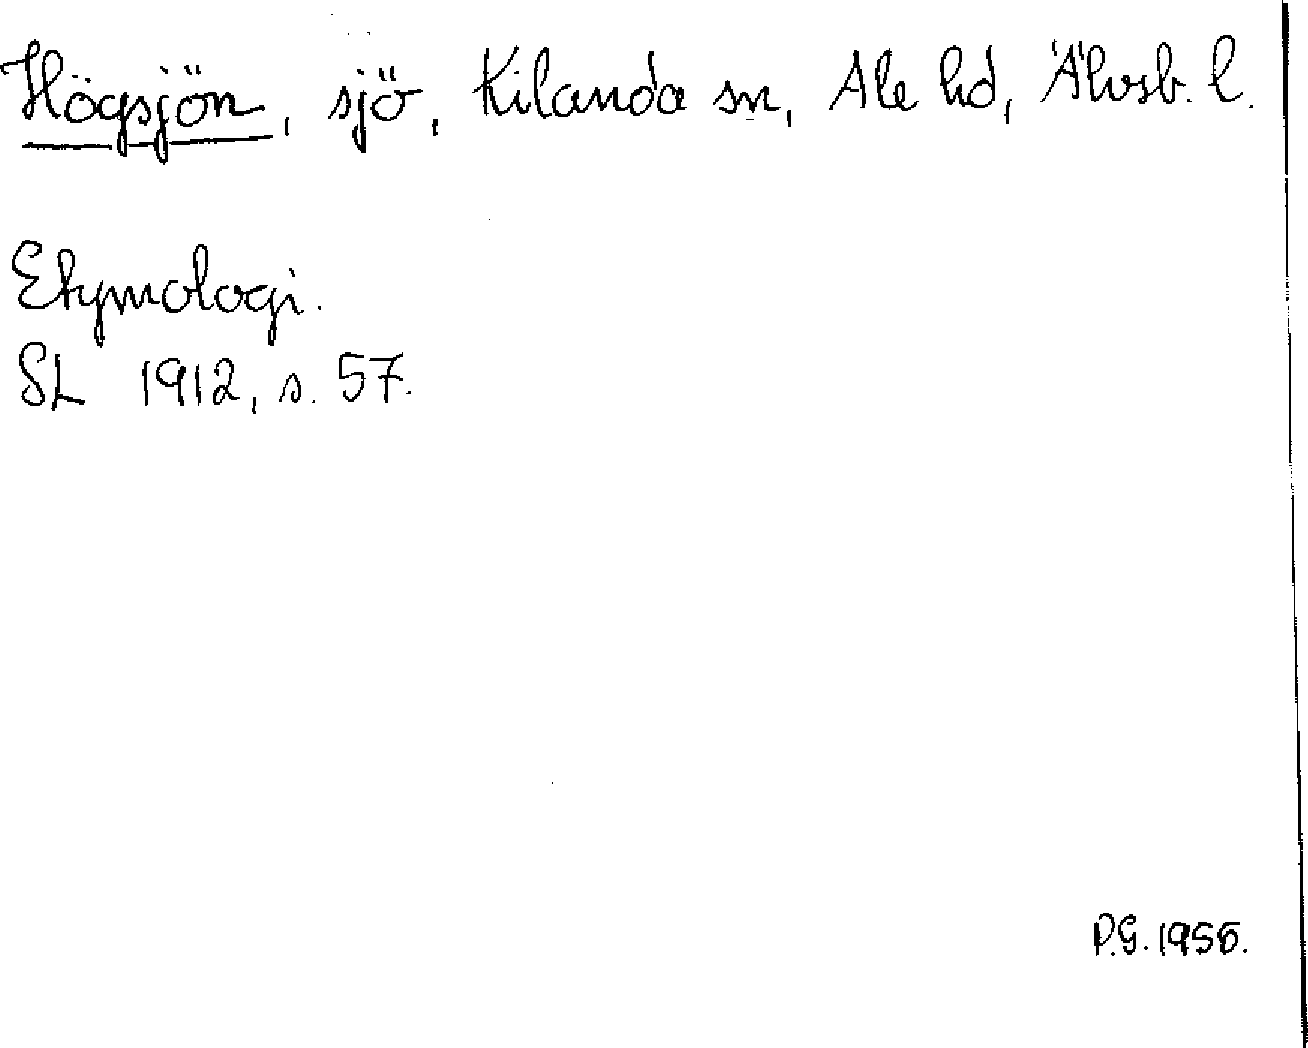 Högsjön, sjö, Kilanda sn, Ale hd, Älvsb. l.
Etymologi.
SL 1912, s. 57.
P.G. 1956.